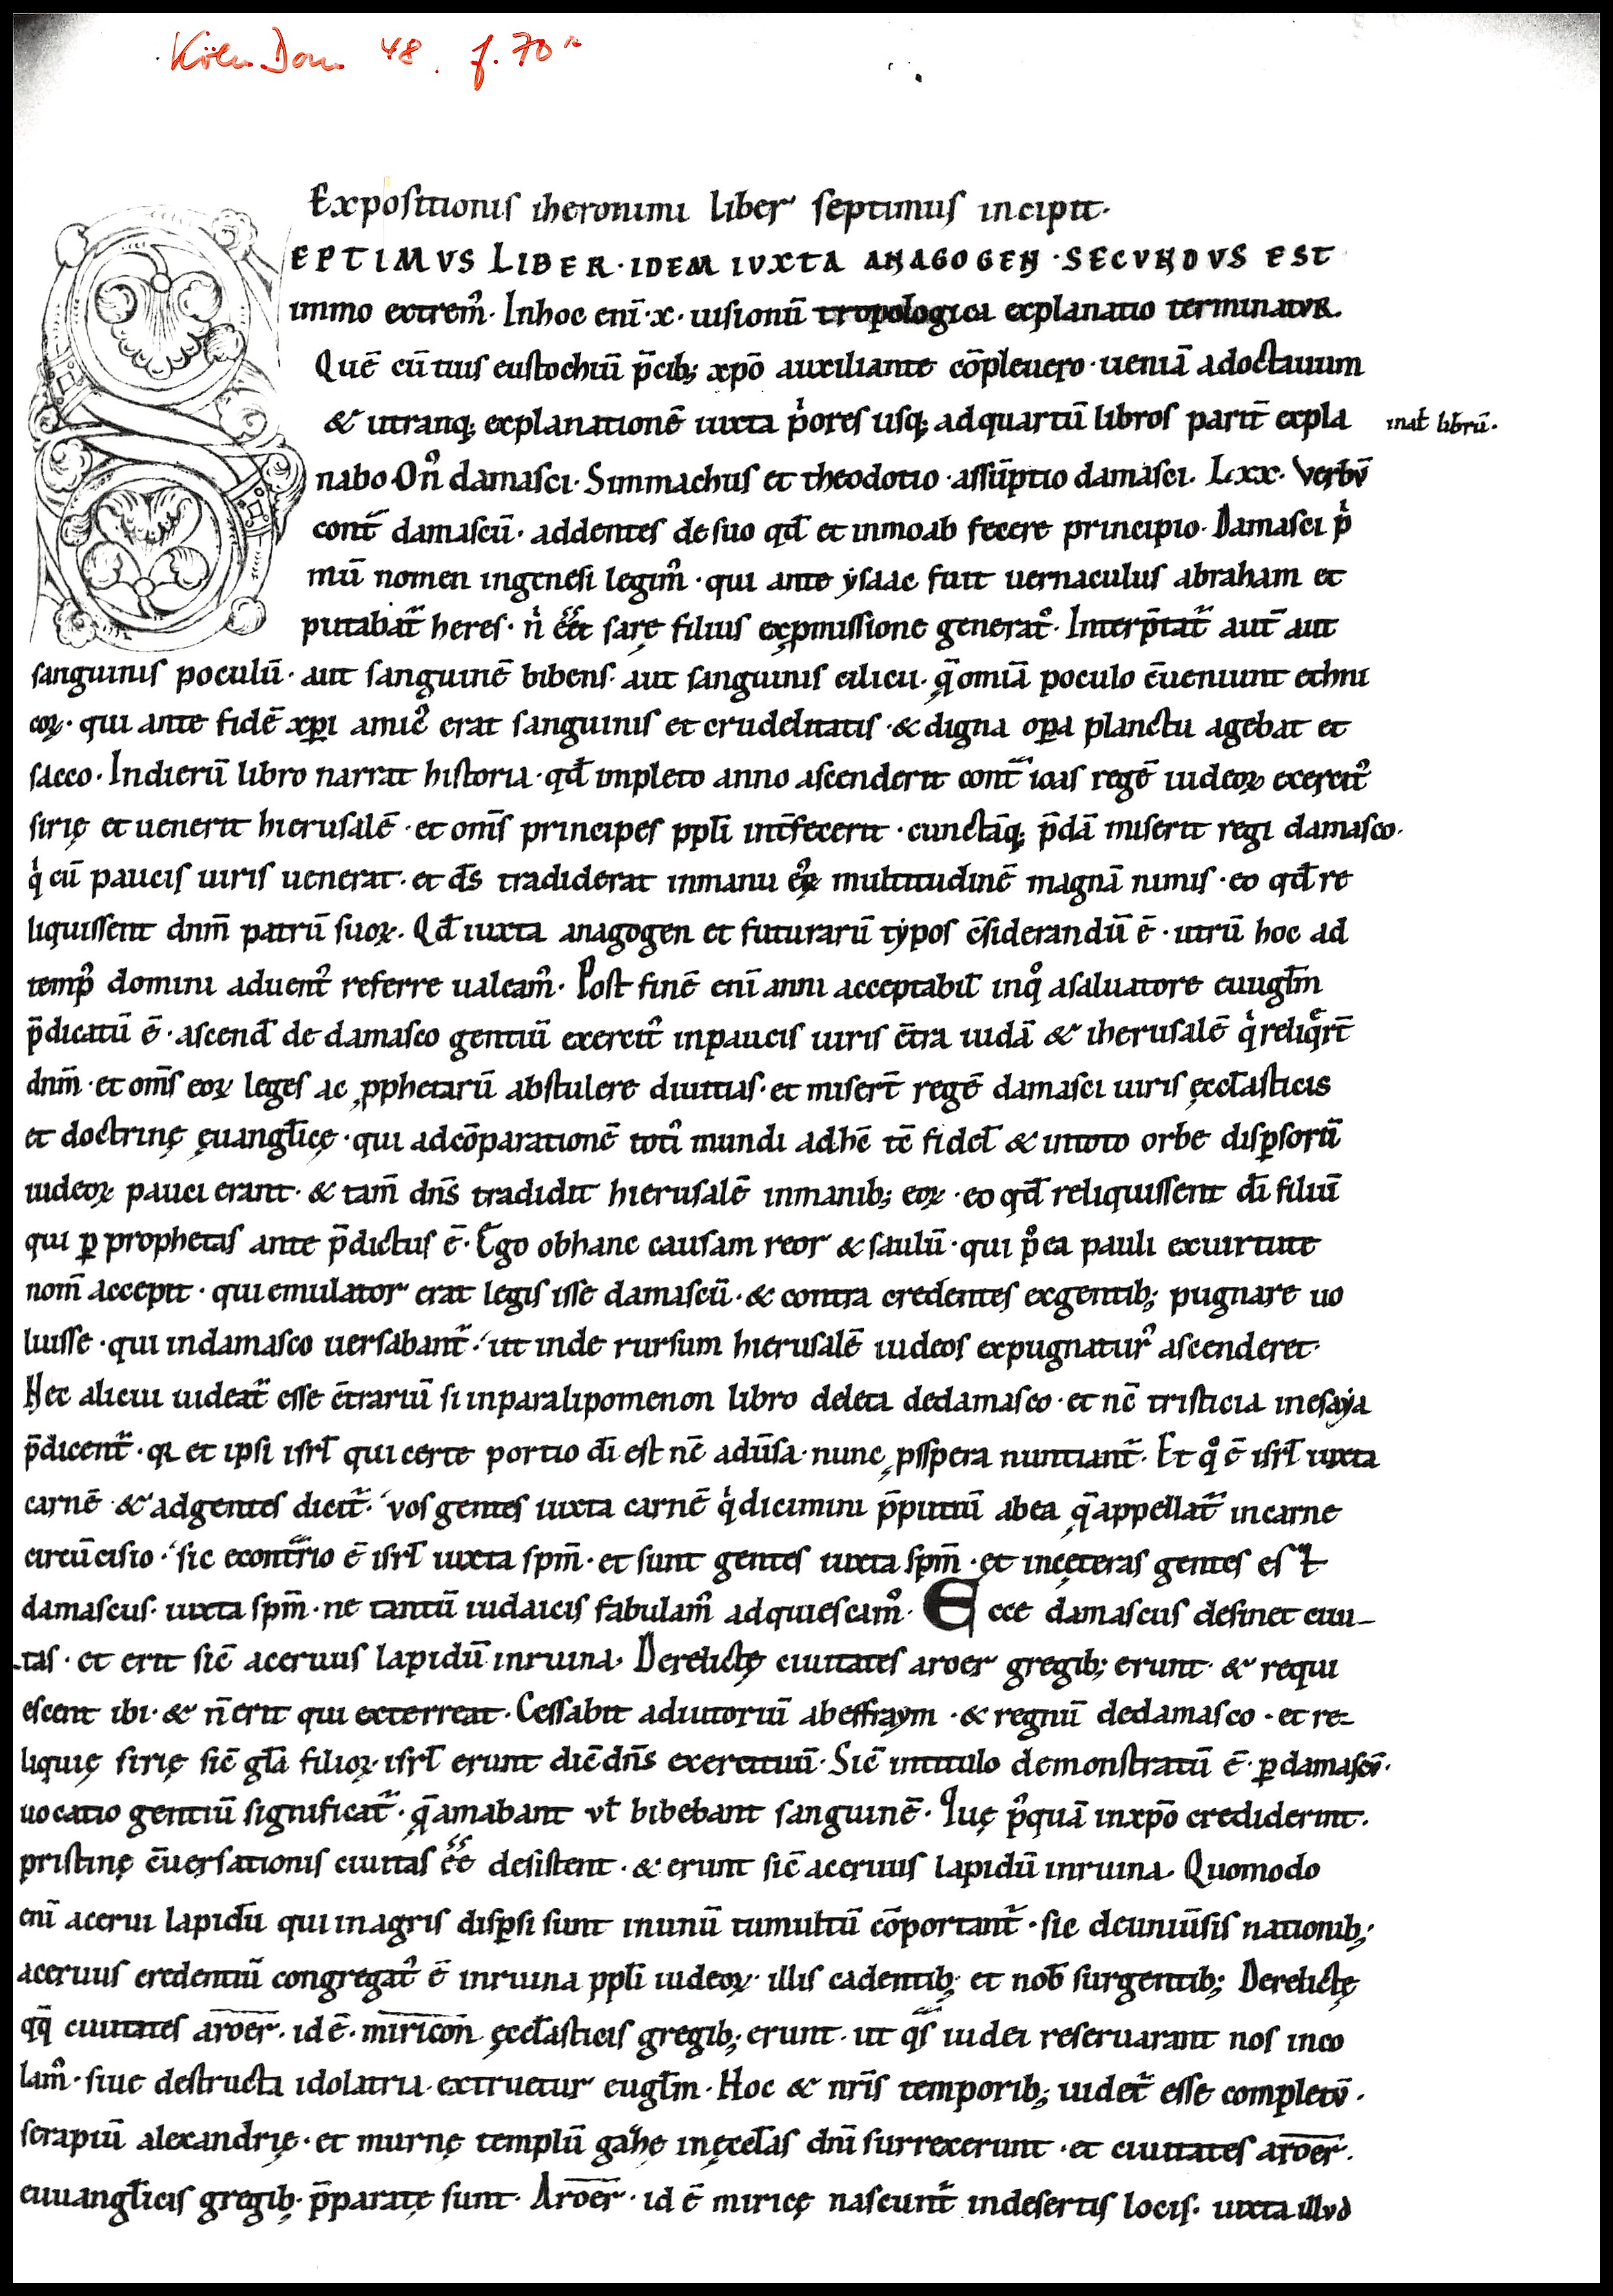 Köln Dom 48. f. 70r
Expositionis iheronimi liber septimus incipit.
SEPTIMVS LIBER · IDEM IVXTA ANAGOGEN · SECVNDVS EST
immo extrem᷒. Inhoc eni̅ · x · uisionu̅ tropologica explanatio terminatvR.
Que̅ cu̅ tuis eustochiu̅ p̅cib; xp̅o auxiliante co̅pleuero · uenia̅ adoctauum
& utranq; explanatione̅ iuxta pͥores usq; adquartu̅ libros parit̅ expla
inat̅ libru̅.
nabo On᷒ damasci. Simmachus et theodotio · assu̅ptio damasci. Lxx. verbv̅
cont̅ damascu̅ · addentes de suo qd̅ et inmoab fecere principio. Damasci pͥ
mu̅ nomen ingenesi legim᷒ · qui ante ẏsaac fuit uernaculus abraham et
putabat̅ heres · nͥ eet̅ sarę filius exꝓmissione generat᷒. Interp̅tat̅ aut̅ aut
sanguinis poculu̅ · aut sanguine̅ bibens · aut sanguinis cilicii · q̅a omia̅ poculo c̅ueniunt ethni
coꝝ · qui ante fide̅ xp̅i amic᷒ erat sanguinis et crudelitatis · & digna oꝑa planctu agebat et
sacco. Indieru̅ libro narrat historia · qd̅ impleto anno ascenderit cont̅ ioas rege̅ iudeoꝝ exercit᷒
sirię et uenerit hierusale̅ · et om̅s principes ppl̅i int̅fecerit · cuncta̅q; p̅da̅ miserit regi damasco.
qͥ cu̅ paucis uiris uenerat · et d̅s tradiderat inmanu eoꝝ multitudine̅ magna̅ nimis · eo qd̅ re
liquissent dnm̅ patru̅ suoꝝ. Qd̅ iuxta anagogen et futuraru̅ tẏpos c̅siderandu̅ e̅ · utru̅ hoc ad
temp᷒ domini aduent᷒ referre ualeam᷒. Post fine̅ eni̅ anni acceptabil̅ inqͦ asaluatore euugl̅m
p̅dicatu̅ e̅ · ascend̅ de damasco gentiu̅ exercit᷒ inpaucis uiris c̅tra iuda̅ & iherusale̅ qͥ reliqͤrt̅
dnm̅ · et om̅s eoꝝ leges ac ꝓphetaru̅ abstulere diuitias · et misert̅ rege̅ damasci uiris ęccl̅asticis
et doctrinę ęuangl̅icę · qui adco̅paratione̅ toti᷒ mundi adhc̅ te̅ fidel̅ & intoto orbe disꝑsoru̅
iudeoꝝ pauci erant · & tam̅ dn̅s tradidit hierusale̅ inmanib; eoꝝ · eo qd̅ reliquissent di̅ filiu̅
qui ꝑ prophetas ante p̅dictus e̅. Ego obhanc causam reor & saulu̅ · qui p᷒ea pauli exuirtute
nom̅ accepit · qui emulator erat legis isse damascu̅ · & contra credentes exgentib; pugnare uo
luisse · qui indamasco uersabant̅ · ut inde rursum hierusale̅ iudeos expugnatur᷒ ascenderet.
Nec alicui uideat̅ esse c̅trariu̅ si inparalipomenon libro deleta dedamasco · et nc̅ tristicia inesaẏa
p̅dicent̅ · qꝛ et ipsi isrl̅ qui certe portio di̅ est nc̅ adu̅sa · nunc ꝓspera nuntiant̅. Et qͦ e̅ isrl̅ iuxta
carne̅ & adgentes dicit̅ · vos gentes iuxta carne̅ qͥ dicimini p̅putiu̅ abea q̅ appellat̅ incarne
circu̅cisio · sic econtr̅io e̅ isrl̅ iuxta spm̅ · et sunt gentes iuxta spm̅ · et incęteras gentes est
damascus · iuxta spm̅ · ne tantu̅ iudaicis fabulam̅ adquiescam᷒. Ecce damascus desinet ciui-
tas · et erit sic̅ aceruus lapidu̅ inruina. Derelictę ciuitates aroer gregib; erunt · & requi
escent ibi · & n̅ erit qui exterreat. Cessabit adiutoriu̅ abeffraym · & regnu̅ dedamasco · et re-
liquię sirię sic̅ gl̅a filioꝝ isrl̅ erunt dic̅ dn̅s exercituu̅. Sic̅ intitulo demonstratu̅ e̅ · ꝑ damascu̅.
uocatio gentiu̅ significat̅ · q̅ amabant vl̅ bibebant sanguine̅. Quę p᷒qua̅ inxp̅o crediderint.
pristinę c̅uersationis ciuitas e̅e̅ desistent · & erunt sic̅ aceruus lapidu̅ inruina. Quomodo
eni̅ acerui lapidu̅ qui inagris disꝑsi sunt inunu̅ tumultu̅ co̅portant̅ · sic deuniu̅sis nationib;
aceruus credentiu̅ congregat᷒ e̅ inruina ppl̅i iudeoꝝ · illis cadentib; et nob̅ surgentib; Derelictę
qq̅ ciuitates aroer · id e̅ · miricon ęccl̅asticis gregib; erunt · ut qs̅ iudei reseruarant nos inco
lam᷒ · siue destructa idolatria · extruetur eugl̅m. Hoc & nr̅is temporib; uidet̅ esse completv̅.
serapiu̅ alexandrię · et murnę templu̅ gahę inęcel̅as dni̅ surrexerunt · et ciuitates aroer.
euuangl̅icis gregib; p̅paratę sunt. Aroer · id e̅ miricę nascunt̅ indesertis locis · iuxta illvd